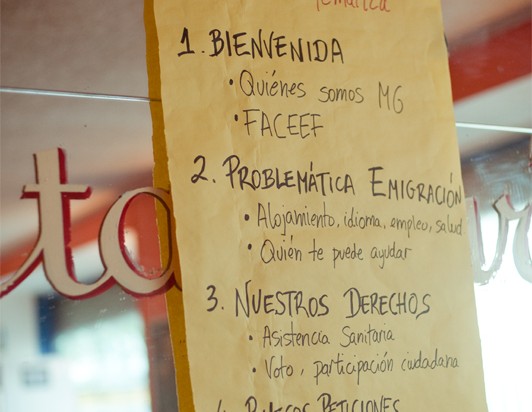 Temática
1. BIENVENIDA
• Quiénes somos MG
• FACEEF
2. PROBLEMÁTICA EMIGRACIÓN
• Alojamiento, idioma, empleo, salud
• Quién te puede ayudar
3. NUESTROS DERECHOS
• Asistencia Sanitaria
• Voto, participación ciudadana
4. PETICIONES
ta